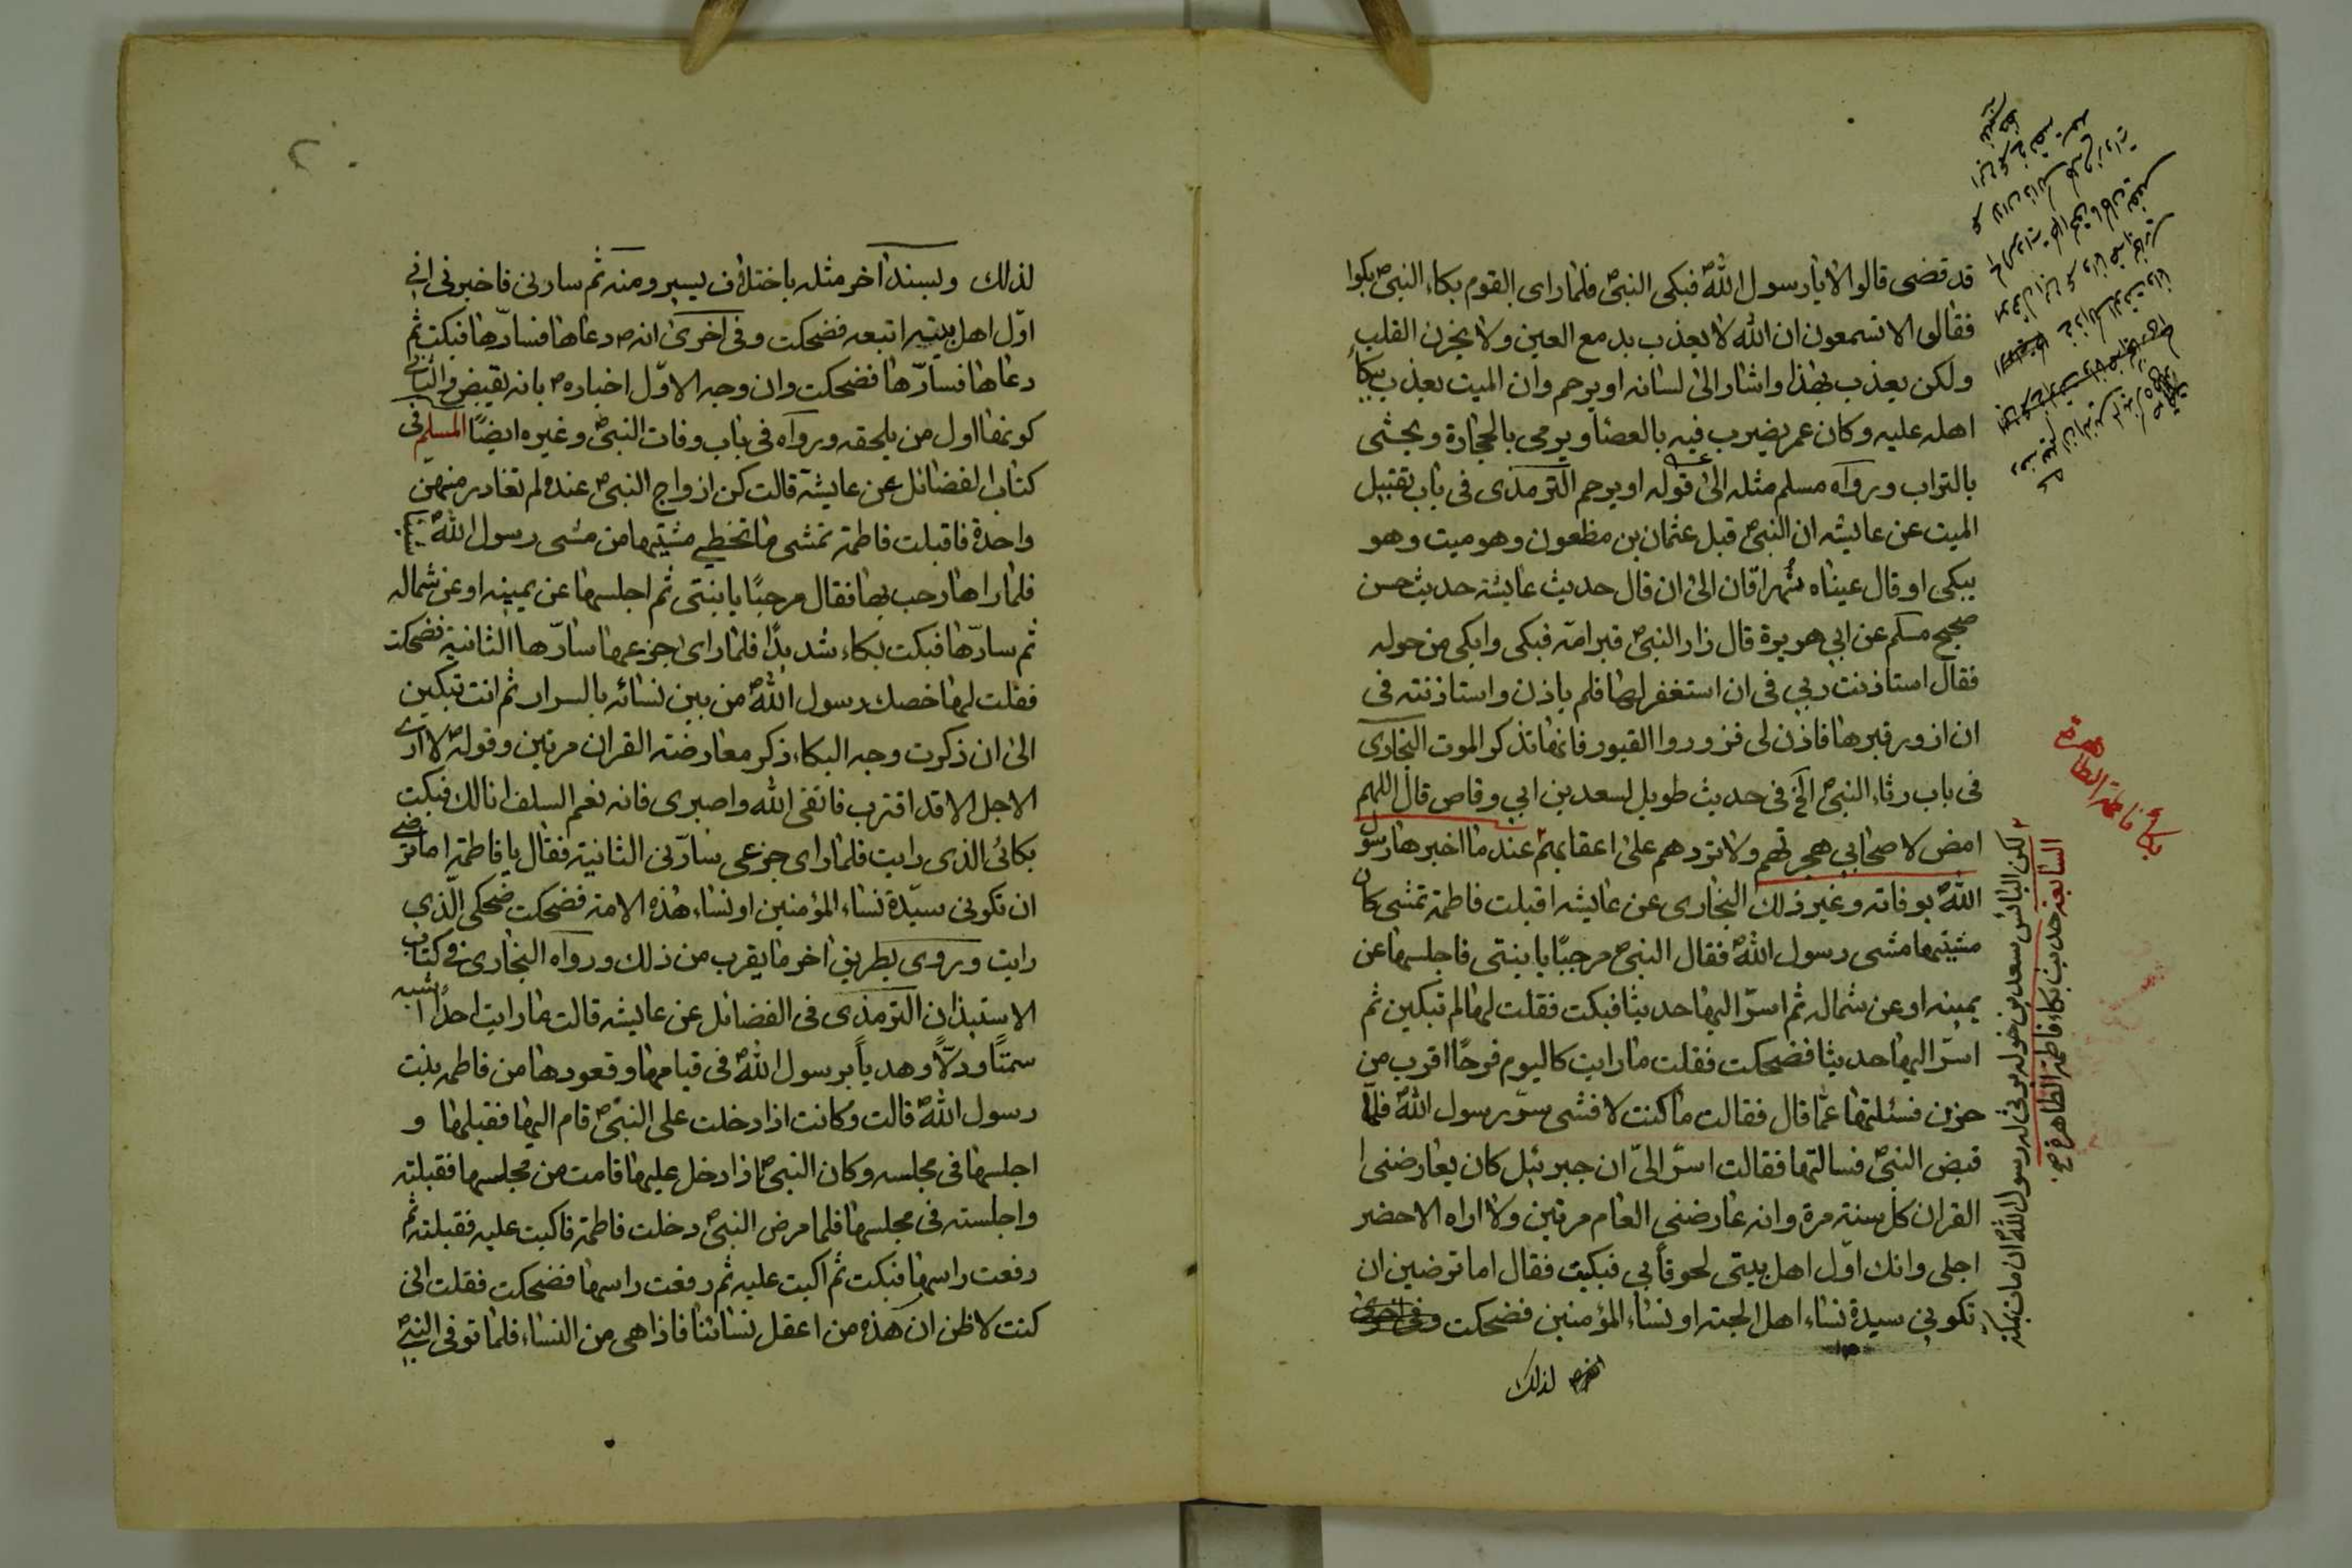 قد قضى قالوا لا يا رسول اللهؐ فبكى النبيؐ فلما راى القوم بكاء النبيؐ بكوا
فقالوا الا تسمعون ان الله لا يعذب بدمع العين ولا بحزن القلب
ولكن يعذب بهذا واشار الى لسانه او يرحم وان الميت يعذب ببكاء
اهله عليه وكان عمر يضرب فيه بالعصا ويرمى بالحجارة ويحثى
بالتراب ورواه مسلم مثله الى قوله او يرحم الترمذى فى باب تقبيل
الميت عن عايشه ان النبيؐ قبل عثمان بن مظعون وهو ميت وهو
يبكى او قال عيناه تهراقان الى ان قال حديث عايشة حديث حسن
صحيح مسلم عن ابي هريرة قال زار النبيؐ قبر امّه فبكى وابكى من حوله
فقال استاذنت ربي فى ان استغفر لها فلم ياذن واستاذنته فى
ان ازور قبرها فاذن لى فزوروا القبور فانها تذكر الموت البخارى
فى باب رثاء النبيؐ الخ فى حديث طويل لسعد بن ابي وقاص قال اللهم
امض لاصحابي هجرتهم ولا تردهم على اعقابهم عند ما اخبرها رسول
اللهؐ بوفاته وغير ذلك البخارى عن عايشه اقبلت فاطمة تمشى كان
مشيتها مشى رسول اللهؐ فقال النبيؐ مرحبًا يا بنتى فاجلسها عن
يمينه او عن شماله ثم اسرّ اليها حديثا فبكت فقلت لها لم تبكين ثم
اسرّ اليها حديثا فضحكت فقلت ما رايت كاليوم فرحًا اقرب من
حزن فسئلتها عمّا قال فقالت ما كنت لافشى سرّ رسول اللهؐ فلمّا
قبض النبيؐ فسالتها فقالت اسرّ الىّ ان جبرئيل كان يعارضنى
القران كل سنة مرة وانه عارضني العام مرتين ولا اراه الا حضر
اجلى وانك اوّل اهل بيتى لحوقاً بي فبكيت فقال اما ترضين ان
تكوني سيدة نساء اهل الجنه او نساء المؤمنين فضحكت وفى اخرى
لذلك
بكاء فاطمة الطاهرة
السابعة حديث بكاء فاطمة الطاهرة
لكن البائس سعد بن خوله يرثى له رسول اللهؐ ان مات بمكة
لذلك وبسند اخر مثله باختلاف يسير ومنه ثم سارنى فاخبرنى انى
اوّل اهل بيته اتبعه فضحكت وفى اخرى انهؐ دعاها فسارّها فبكت ثم
دعاها فسارّها فضحكت وان وجه الاوّل اخبارهؐ بانه يقبض والثاني
كونها اول من يلحقه ورواه فى باب وفات النبيؐ وغيره ايضًا المسلم فى
كتاب الفضائل عن عايشة قالت كن ازواج النبيؐ عنده لم تغادر منهن
واحدة فاقبلت فاطمة تمشى ما تخطي مشيتها من مشى رسول اللهؐ
فلما راها رحب بها فقال مرحبًا يا بنتى ثم اجلسها عن يمينه او عن شماله
ثم سارّها فبكت بكاء شديدًا فلما راى جزعها سارّها الثانية فضحكت
فقلت لها خصك رسول اللهؐ من بين نسائه بالسرار ثم انت تبكين
الى ان ذكرت وجه البكاء ذكر معارضته القران مرتين وقولهؐ لا ارى
الاجل الا قد اقترب فاتقى الله واصبرى فانه نعم السلف انا لك فبكت
بكائى الذى رايت فلما راى جزعى سارّنى الثانية فقال يا فاطمة اما ترضي
ان تكونى سيّدة نساء المؤمنين او نساء هذه الامة فضحكت ضحكى الّذى
رايت وروى بطريق اخر ما يقرب من ذلك ورواه البخارى فى كتاب
الاستيذان الترمذى فى الفضائل عن عايشه قالت ما رايت احدًا اشبه
سمتًا ودلّاً وهدياً برسول اللهؐ فى قيامها وقعودها من فاطمه بنت
رسول اللهؐ قالت وكانت اذا دخلت على النبيؐ قام اليها فقبلها و
اجلسها فى مجلسه وكان النبيؐ اذا دخل عليها قامت من مجلسها فقبلته
واجلسته فى مجلسها فلما مرض النبيؐ دخلت فاطمة فاكبت عليه فقبلته ثم
رفعت راسها فبكت ثم اكبت عليه ثم رفعت راسها فضحكت فقلت انى
كنت لاظن ان هذه من اعقل نسائنا فاذا هى من النساء فلما توفى النبيؐ